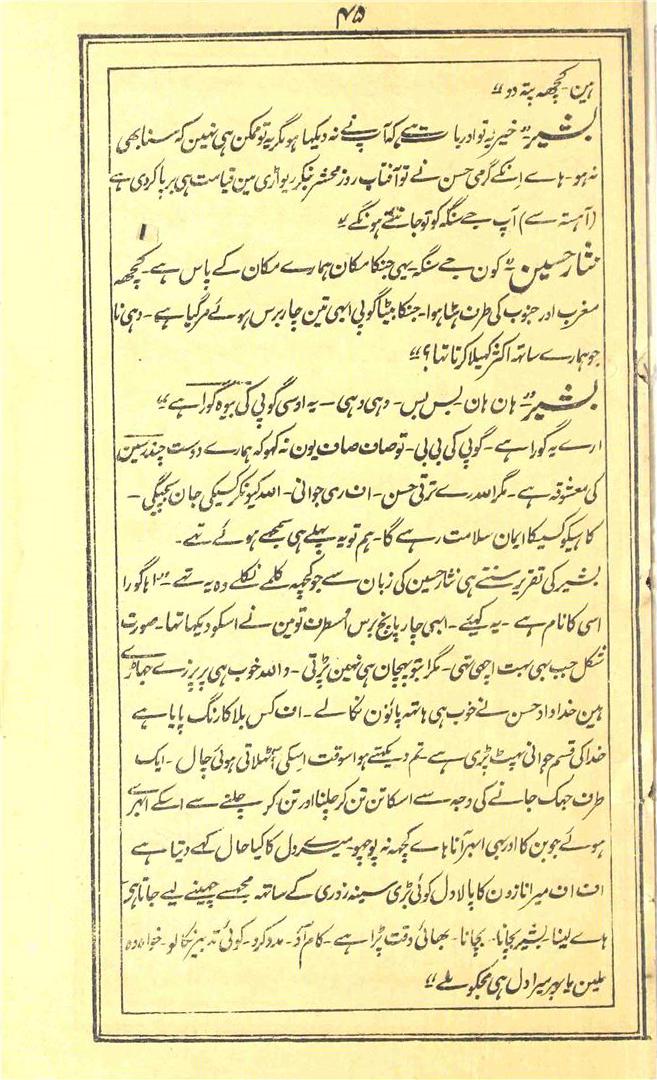 ۴۵
ہین۔ کچھہ پتہ دو“
بشیر ”خیر یہ تو اور بات ہے کہ آپ نے نہ دیکھا ہو مگر یہ تو ممکن ہی نہین کہ سنا بھی
نہ ہو۔ ہاے انکے گرمی حسن نے تو آفتاب روز محشر بنکر ریواڑی مین قیامت ہی برپا کردی ہے
(آہستہ سے) آپ جے سنگہ کو تو جانتے ہونگے“
نثار حسین ”کون جے سنگہ۔ یہی جنکا مکان ہمارے مکان کے پاس ہے۔ کچھہ
مغرب اور جنوب کی طرف ہٹا ہوا۔ جنکا بیٹا گوپی ابہی تین چار برس ہوئے مرگیا ہے۔ وہی نا
جو ہمارے ساتہ اکثر کھیلا کرتا تہا؟“
بشیر ”ہان ہان بس بس۔ وہی وہی۔ یہ اوسی گوپی کی بیوہ گورا ہے“
ارے یہ گورا ہے۔ گوپی کی بی بی۔ تو صاف صاف یون نہ کہو کہ ہمارے دوست چندر سین
کی معشوقہ ہے۔ مگر اللہ رے ترقی حسن۔ اف ری جوانی۔ اللہ کیونکر کسیکی جان بچیگی۔
کاہیکو کسیکا ایمان سلامت رہے گا۔ ہم تو یہ پہلے ہی سمجھے ہوئے تہے۔
بشیر کی تقریر سنتے ہی نثار حسین کی زبان سے جو کچھہ کلمے نکلے وہ یہ تہے۔ ”اہا گورا
اسی کا نام ہے۔ یہ کہیئے۔ ابہی چار پانچ برس اسطرف تو مین نے اسکو دیکہا تہا۔ صورت
شکل جب بہی بہت اچھی تہی۔ مگر اب تو پہچان ہی نہین پڑتی۔ واللہ خوب ہی پر پرزے جہاڑے
ہین خداداد حسن نے خوب ہی ہاتہ پاؤن نکالے۔ اف کس بلا کا رنگ پایا ہے
خدا کی قسم جوانی پہٹ پڑی ہے۔ تم دیکہتے ہو اسوقت اسکی اٹہلاتی ہوئی چال۔ ایک
طرف جہک جانے کی وجہ سے اسکا تن تن کر چلنا اور تن کر چلنے سے اسکے ابہرے
ہوئے جوبن کا اور بہی ابہر آنا ہاے کچھہ نہ پوچہو میرے دل کا کیا حال کہے دیتا ہے
اف اف میرا نازون کا پالا دل کوئی بڑی سینہ زوری کے ساتہ مجہسے چہینے لیے جاتا ہے
ہاے لینا بشیر بچانا۔ بچانا۔ بہائی وقت پڑا ہے۔ کام آؤ۔ مدد کرو۔ کوئی تدبیر نکالو۔ خواہ وہ
ملین یا پہر میرا دل ہی مجکو ملے“